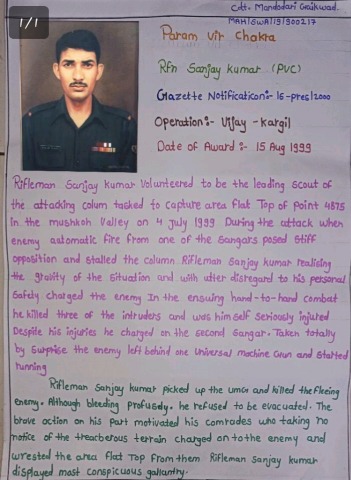 1/1
Cdt. Mandodari Gaikwad.
MAH/SWA/19/300217
Param Vir Chakra
Rfn Sanjay Kumar (PVC)
Gazette Notification:- 16-pres/2000
Operation:- Vijay -kargil
Date of Award :- 15 Aug 1999
Rifleman Sanjay kumar Volunteered to be the leading scout of
the attacking colum tasked to capture area flat Top of Point 4875
in the mushkoh Valley on 4 july 1999 During the attack when
enemy automatic fire from one of the sangars posed stiff
opposition and stalled the column Rifleman Sanjay kumar realising
the gravity of the situation and with utter disregard to his personal
safety charged the enemy In the ensuing hand-to-hand combat
he killed three of the intruders and was himself seriously injured
Despite his injuries he charged on the second sangar. Taken totally
by Surprise the enemy left behind one Universal machine Gun and started
running
Rifleman Sanjay kumar picked up the umG and killed the fleeing
enemy. Although bleeding profusely. he refused to be evacuated. The
brave action on his part motivated his comrades who taking no
notice of the treacherous terrain charged on to the enemy and
wrested the area flat Top from them Rifleman Sanjay kumar
displayed most conspicuous gallantry.